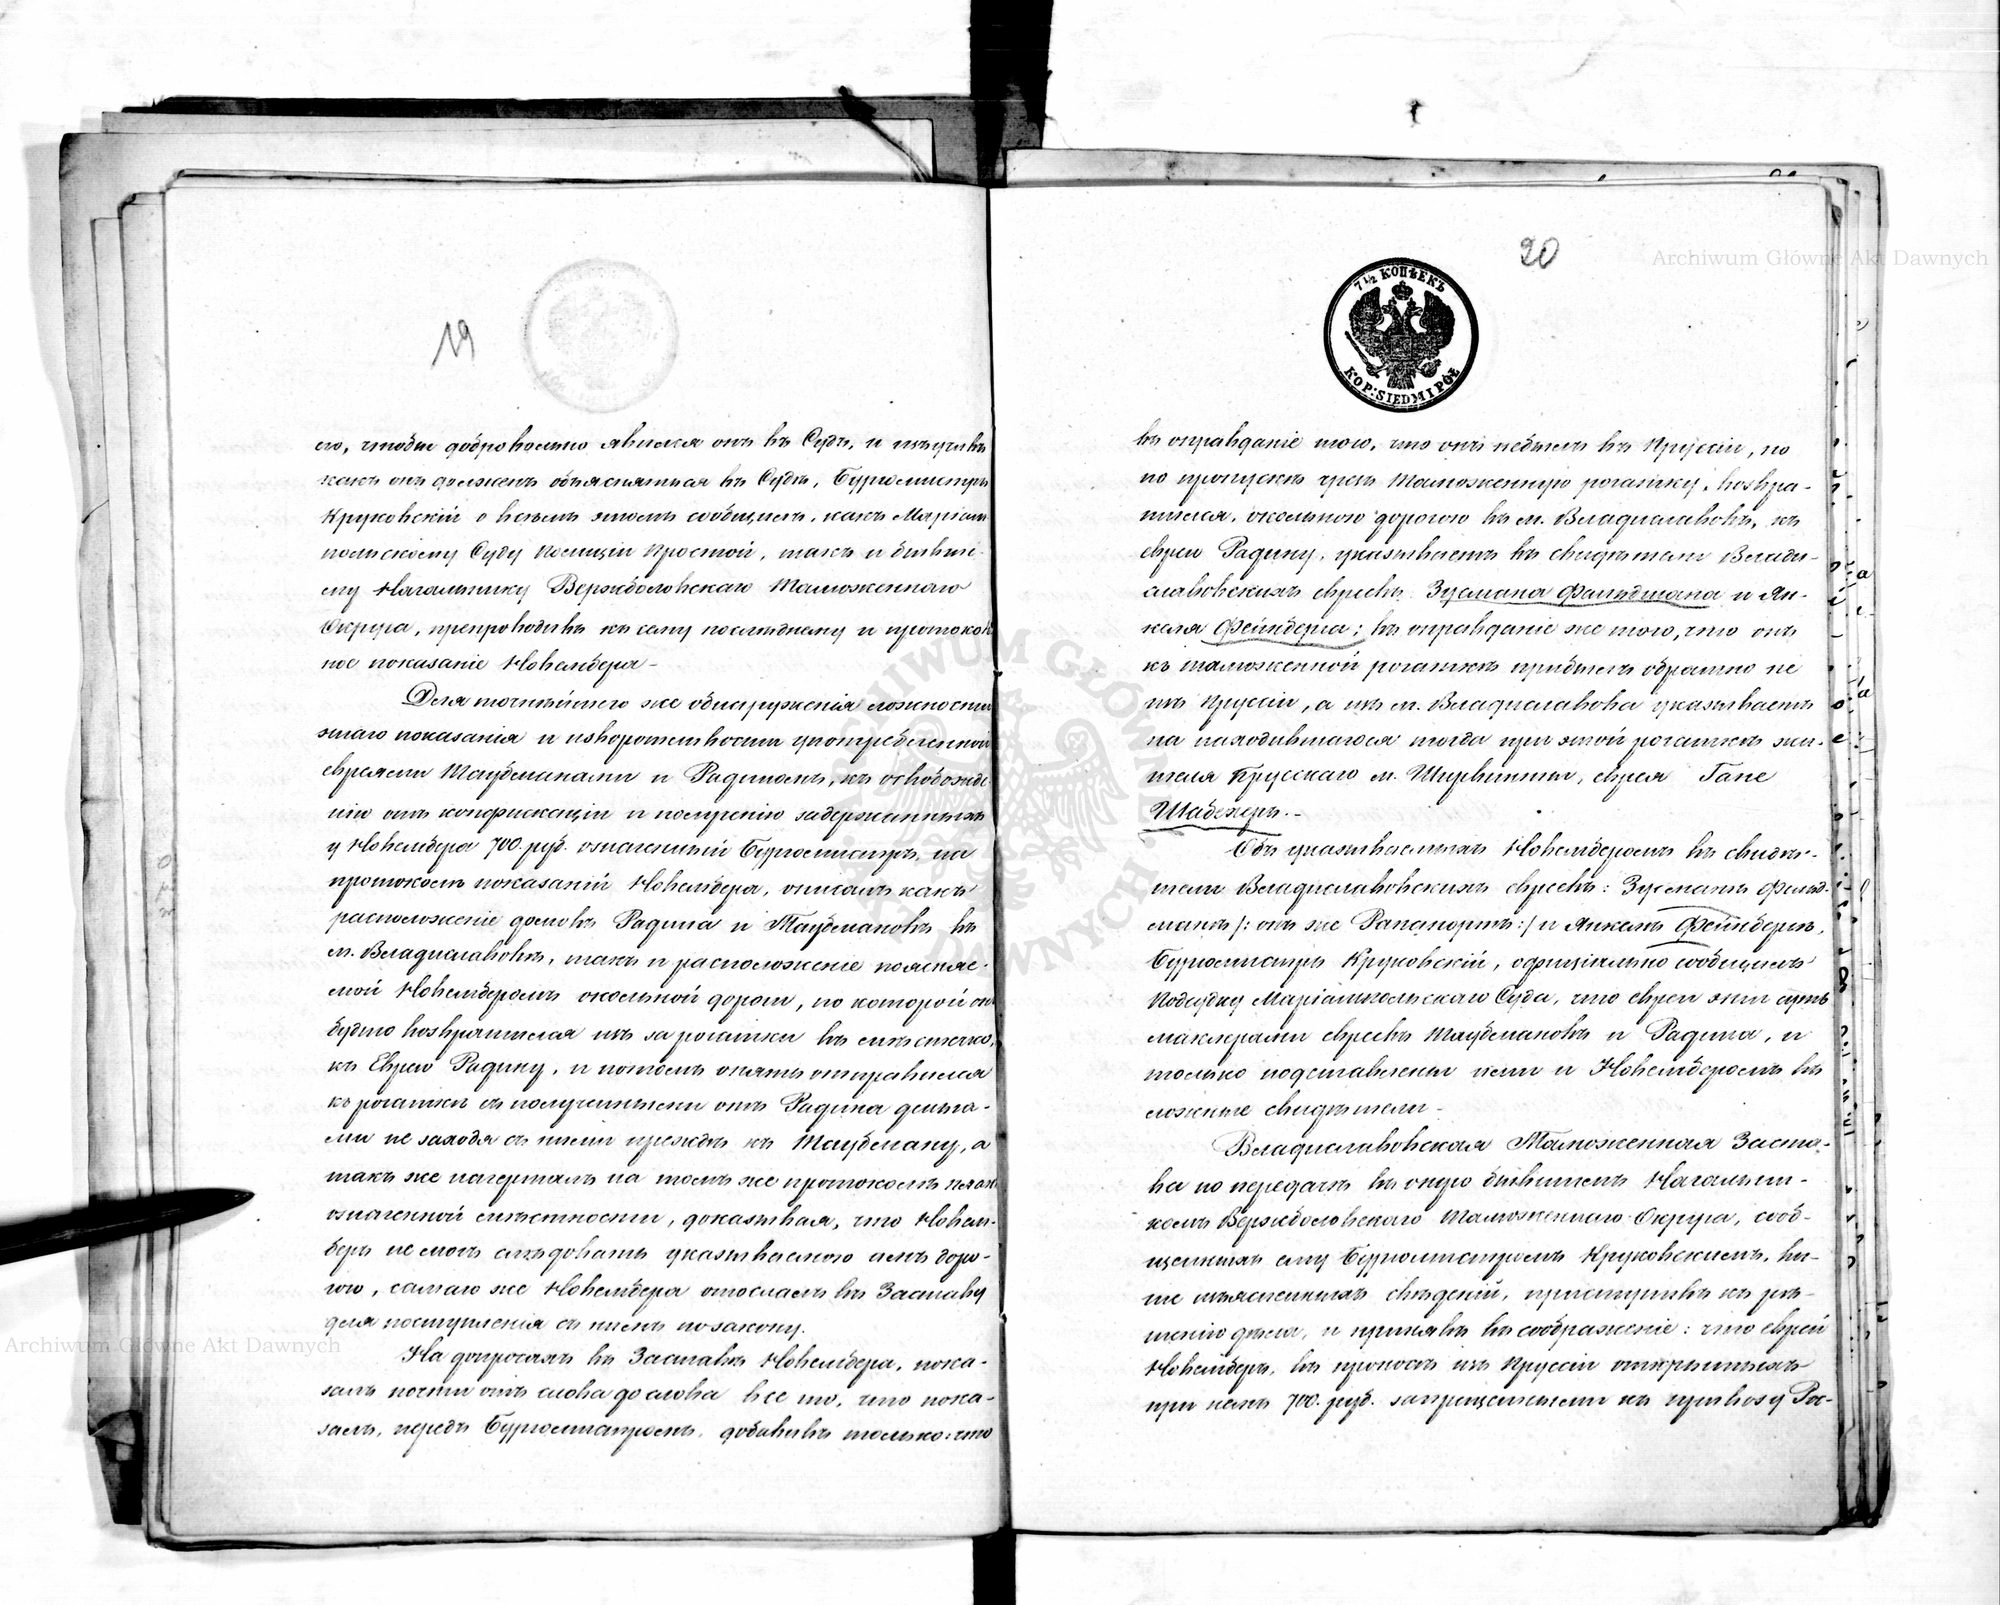 19
его, чтобы добровольно явился онъ въ Судъ, и изучивъ
какъ онъ долженъ объясняться въ Судѣ, Бургомистръ
Круковскій о всемъ этомъ сообщилъ, какъ Маріам-
польскому Суду Полиціи Простой, такъ и бывше-
му Начальнику Вержболовскаго Таможеннаго
Округа, препроводивъ къ сему послѣднему и протоколь-
ное показаніе Новембера –
Для точнѣйшаго же обнаруженія ложности
этаго показанія и изворотливости употребленной
евреями Таубманами и Радиномъ, къ освобожде-
нію отъ конфискаціи и полученію задержанныхъ
у Новембера 700. руб. означенный Бургомистръ, на
протоколѣ показаній Новембера, описалъ какъ
расположеніе домовъ Радина и Таубмановъ въ
м. Владиславовѣ, такъ и расположеніе поясняе-
мой Новемберомъ окольной дороги, по которой онъ
будто возвратился изъ за рогатки въ мѣстечко,
къ Еврею Радину, и потомъ опять отправился
къ рогатки съ полученными отъ Радина деньга-
ми не заходя съ ними прежде къ Таубману, а
такъ же начерталъ на томъ же протоколѣ планъ
означенной мѣстности, доказывая, что Новем-
беръ не могъ слѣдовать указываемою имъ доро-
гою, самаго же Новембера отослалъ въ Заставу
для поступленія съ нимъ по закону.
На допросахъ въ Заставѣ Новемберъ, пока-
залъ почти отъ слова до слова все то, что пока-
залъ, передъ Бургомистромъ, добавивъ только: что
20
7 1/2 КОПѢЕКЪ
KOP: SIEDM I PÓŁ
въ оправданіе того, что онъ небылъ въ Пруссіи, но
по пропускѣ чрезъ Таможенную рогатку, возвра-
тился, окольною дорогою въ м. Владиславовъ, къ
еврею Радину, указываетъ въ свидѣтели Влади-
славовскихъ евреевъ Зусмана Фельдмана и Ян-
келя Фейнберга; въ оправданіе же того, что онъ
къ таможенной рогаткѣ прибылъ обратно не
изъ Пруссіи, а изъ м. Владиславова указываетъ
на находившагося тогда при этой рогаткѣ жи-
теля Прусскаго м. Ширвинты, еврея Гапе
Шабехеръ. –
Объ указываемыхъ Новемберомъ въ свидѣ-
тели Владиславовскихъ евреевъ: Зусманъ Фельд-
манъ /: онъ же Рапопортъ :/ и Янкель Фейнбергъ,
Бургомистръ Круковскій, официально сообщилъ
Подсудку Маріампольскаго Суда, что евреи эти суть
маклерами евреевъ Таубмановъ и Радина, и
только подставлены ими и Новемберомъ въ
ложные свидѣтели –
Владиславовская Таможенная Заста-
ва по передачѣ въ оную бывшимъ Началь-
комъ Вержболовскаго Таможеннаго Округа, сооб-
щенныхъ ему Бургомистромъ Круковскимъ, вы-
ше изъясненныхъ свѣдѣній, приступивъ къ рѣ-
шенію дѣла, и принявъ въ соображеніе: что еврей
Новемберъ, въ проносѣ изъ Пруссіи открытыхъ
при немъ 700. руб. запрещенными къ привозу Рос-
Archiwum Główne Akt Dawnych
Archiwum Główne Akt Dawnych
ARCHIWUM GŁÓWNE AKT DAWNYCH